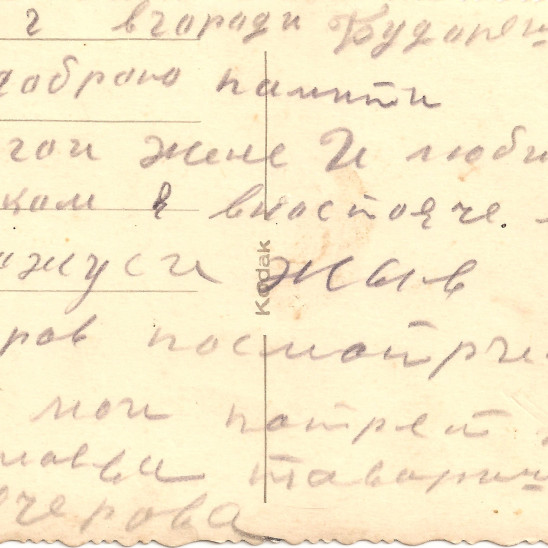 г вгороди Будапеш
доброю памити
гои жене И люби
ком я внастояче
нжусе жыв
ров посмотрите
мои патрет
товариш
черова
Kodak